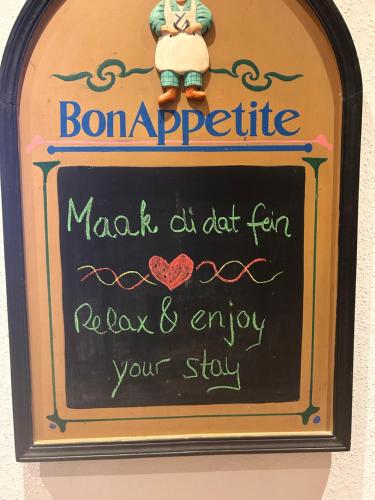 Bon Appetite
Maak di dat fein
Relax & enjoy
your stay